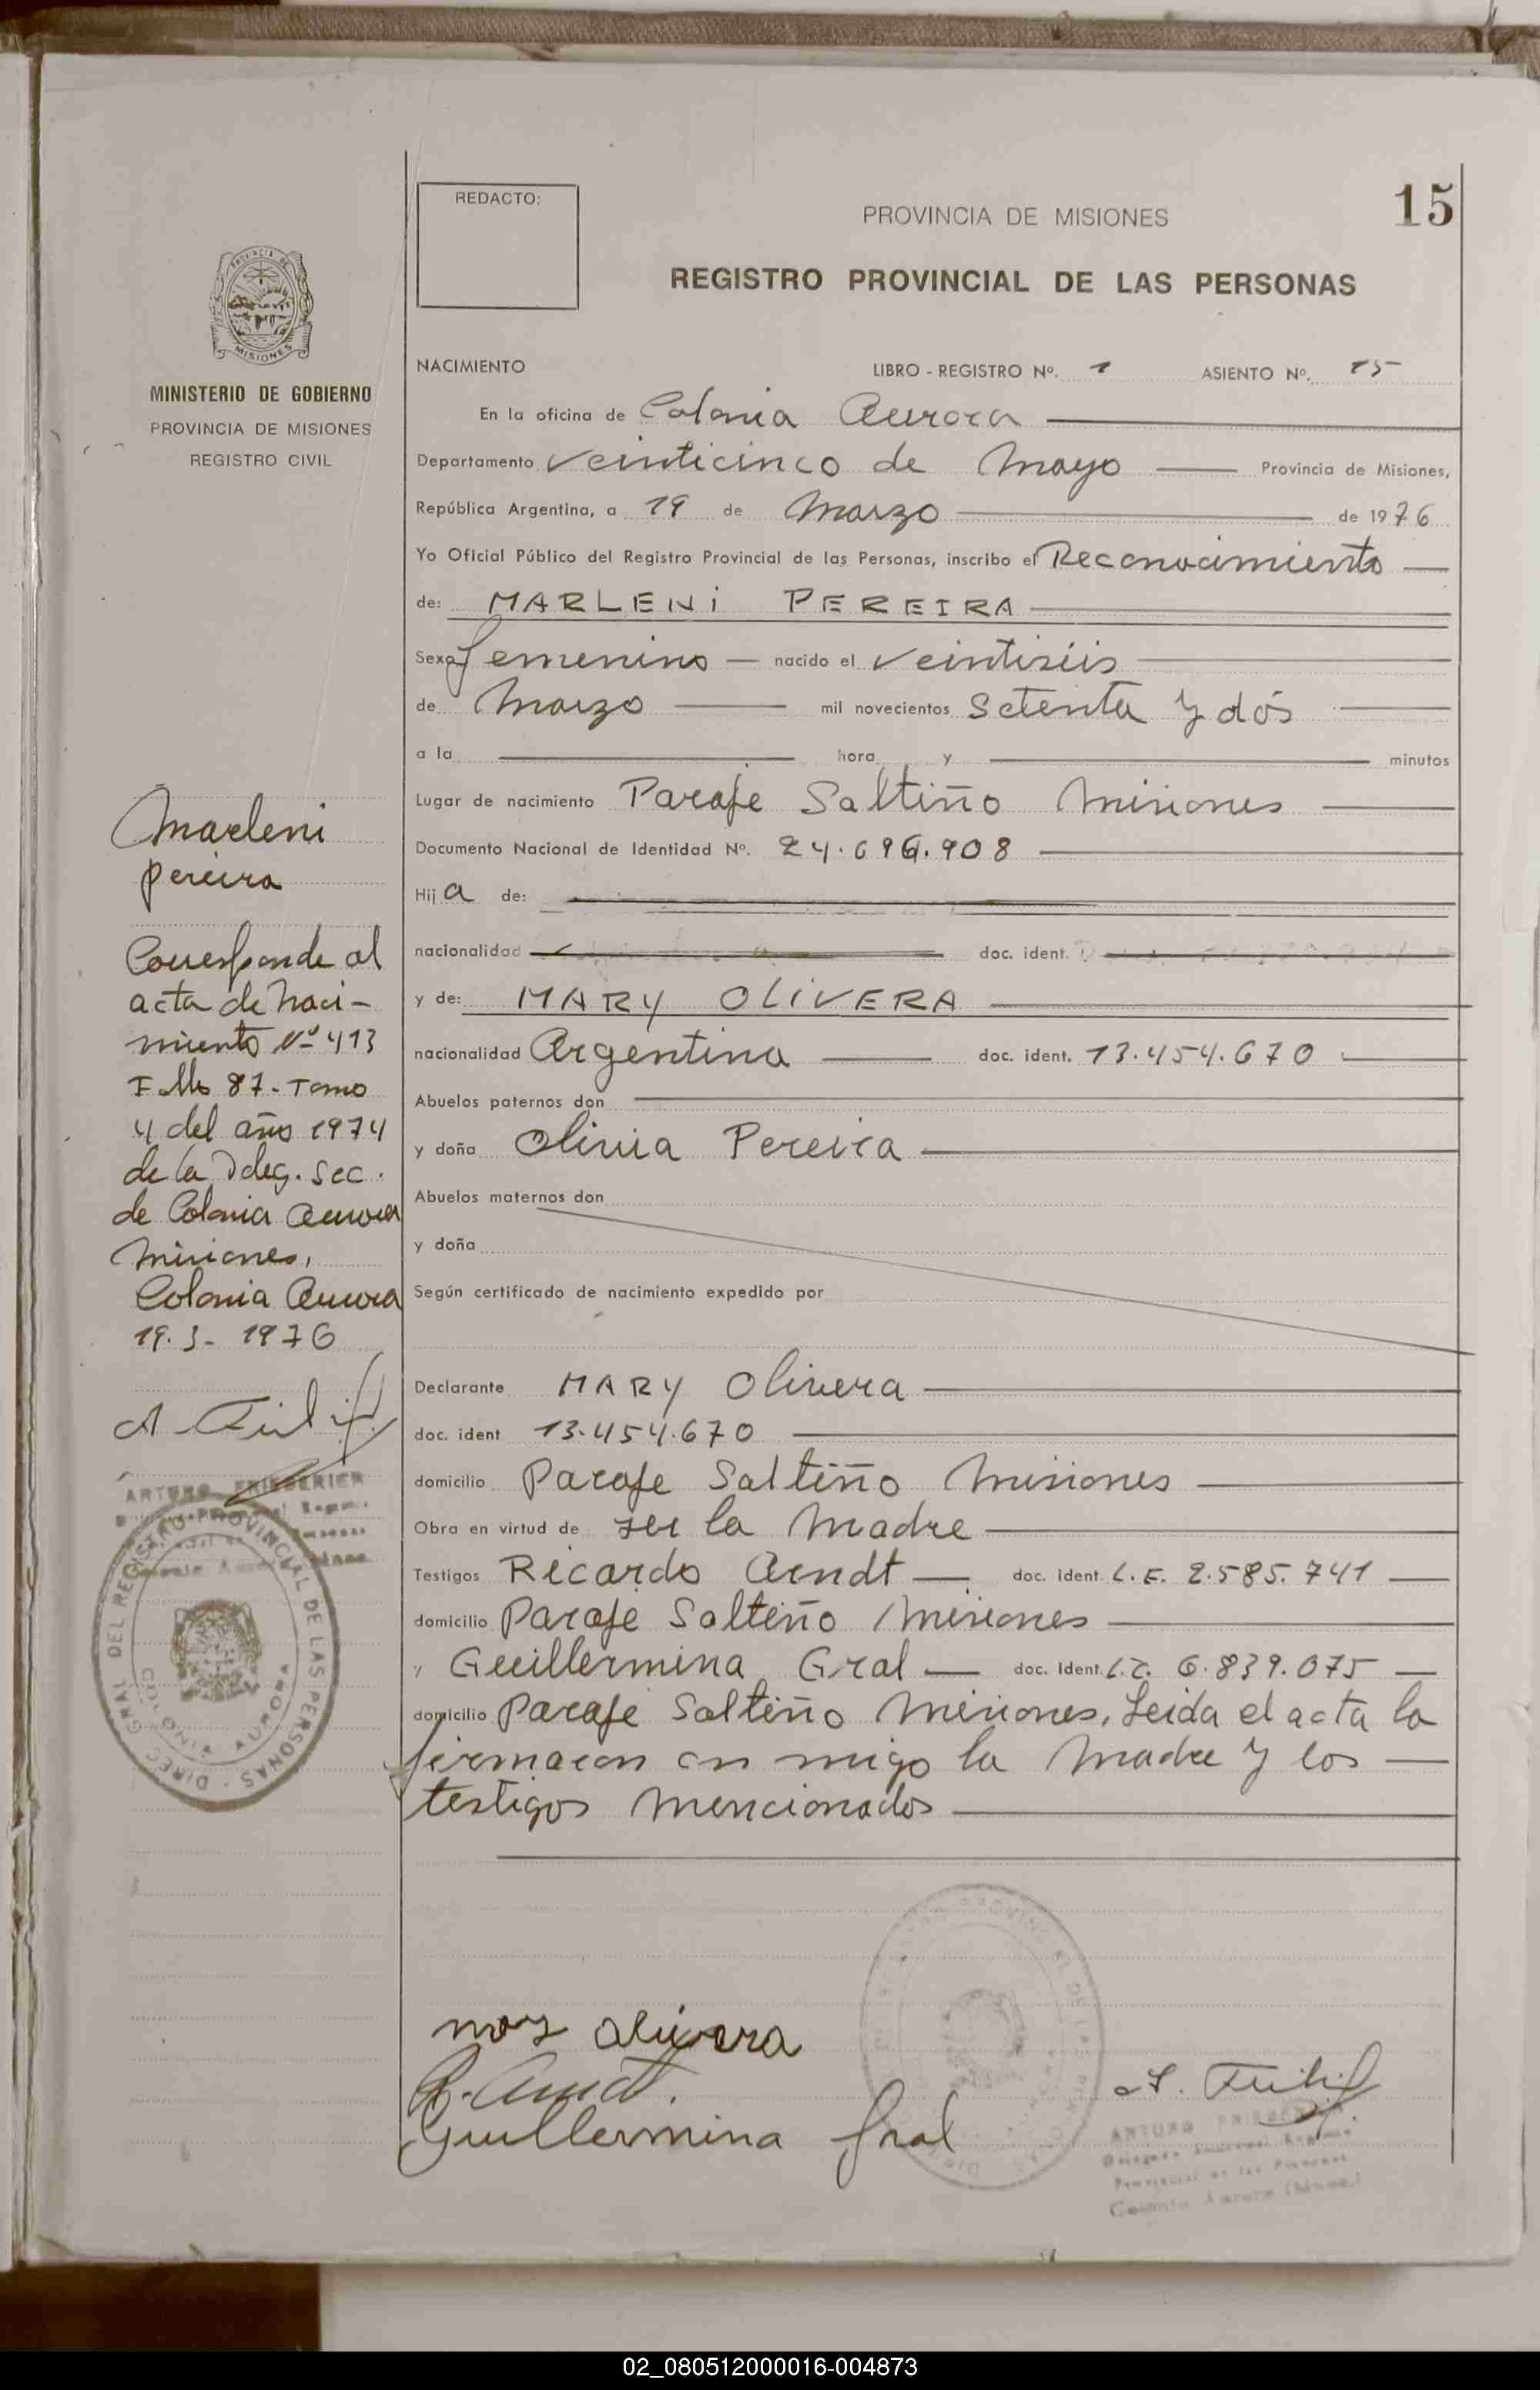 15
REDACTO:
PROVINCIA DE MISIONES
REGISTRO PROVINCIAL DE LAS PERSONAS
PROVINCIA DE
MISIONES
MINISTERIO DE GOBIERNO
PROVINCIA DE MISIONES
REGISTRO CIVIL
NACIMIENTO LIBRO - REGISTRO Nº. 1 ASIENTO Nº. 15
En la oficina de Colonia Aurora
Departamento Veinticinco de Mayo Provincia de Misiones,
República Argentina, a 19 de Marzo de 1976
Yo Oficial Público del Registro Provincial de las Personas, inscribo el Reconocimiento
de: MARLENi PEREIRA
Sexo femenino nacido el Veintiséis
de Marzo mil novecientos Setenta y dós
a la hora y minutos
Lugar de nacimiento Paraje Saltiño Misiones
Documento Nacional de Identidad Nº. 24.696.908
Hij a de:
nacionalidad doc. ident.
y de: MARY OLiVERA
nacionalidad Argentina doc. ident. 13.454.670
Abuelos paternos don
y doña Olivia Pereira
Abuelos maternos don
y doña
Según certificado de nacimiento expedido por
Declarante MARY Olivera
doc. ident 13.454.670
domicilio Paraje Saltiño Misiones
Obra en virtud de ser la Madre
Testigos Ricardo Arndt doc. ident. L.E. 2.585.741
domicilio Paraje Saltiño Misiones
y Guillermina Gral doc. Ident. L.C. 6.839.075
domicilio Paraje Saltiño Misiones, Leida el acta la
firmaron con migo la Madre y los
testigos Mencionados
Marleni
Pereira
Corresponde al
acta de Naci-
miento Nº 413
Follo 87 - Tomo
4 del año 1974
de la Deleg. Sec.
de Colonia Aurora
Misiones,
Colonia Aurora
19.3- 1976
ARTURO FRIEDERICH
DIREC. GRAL. DEL REGISTRO PROVINCIAL DE LAS PERSONAS
COLONIA AURORA
mary olivera
R. Arndt.
Guillermina Gral
ARTURO FRIEDERICH
Provincial de las Personas
Colonia Aurora (Mnes.)
02_080512000016-004873